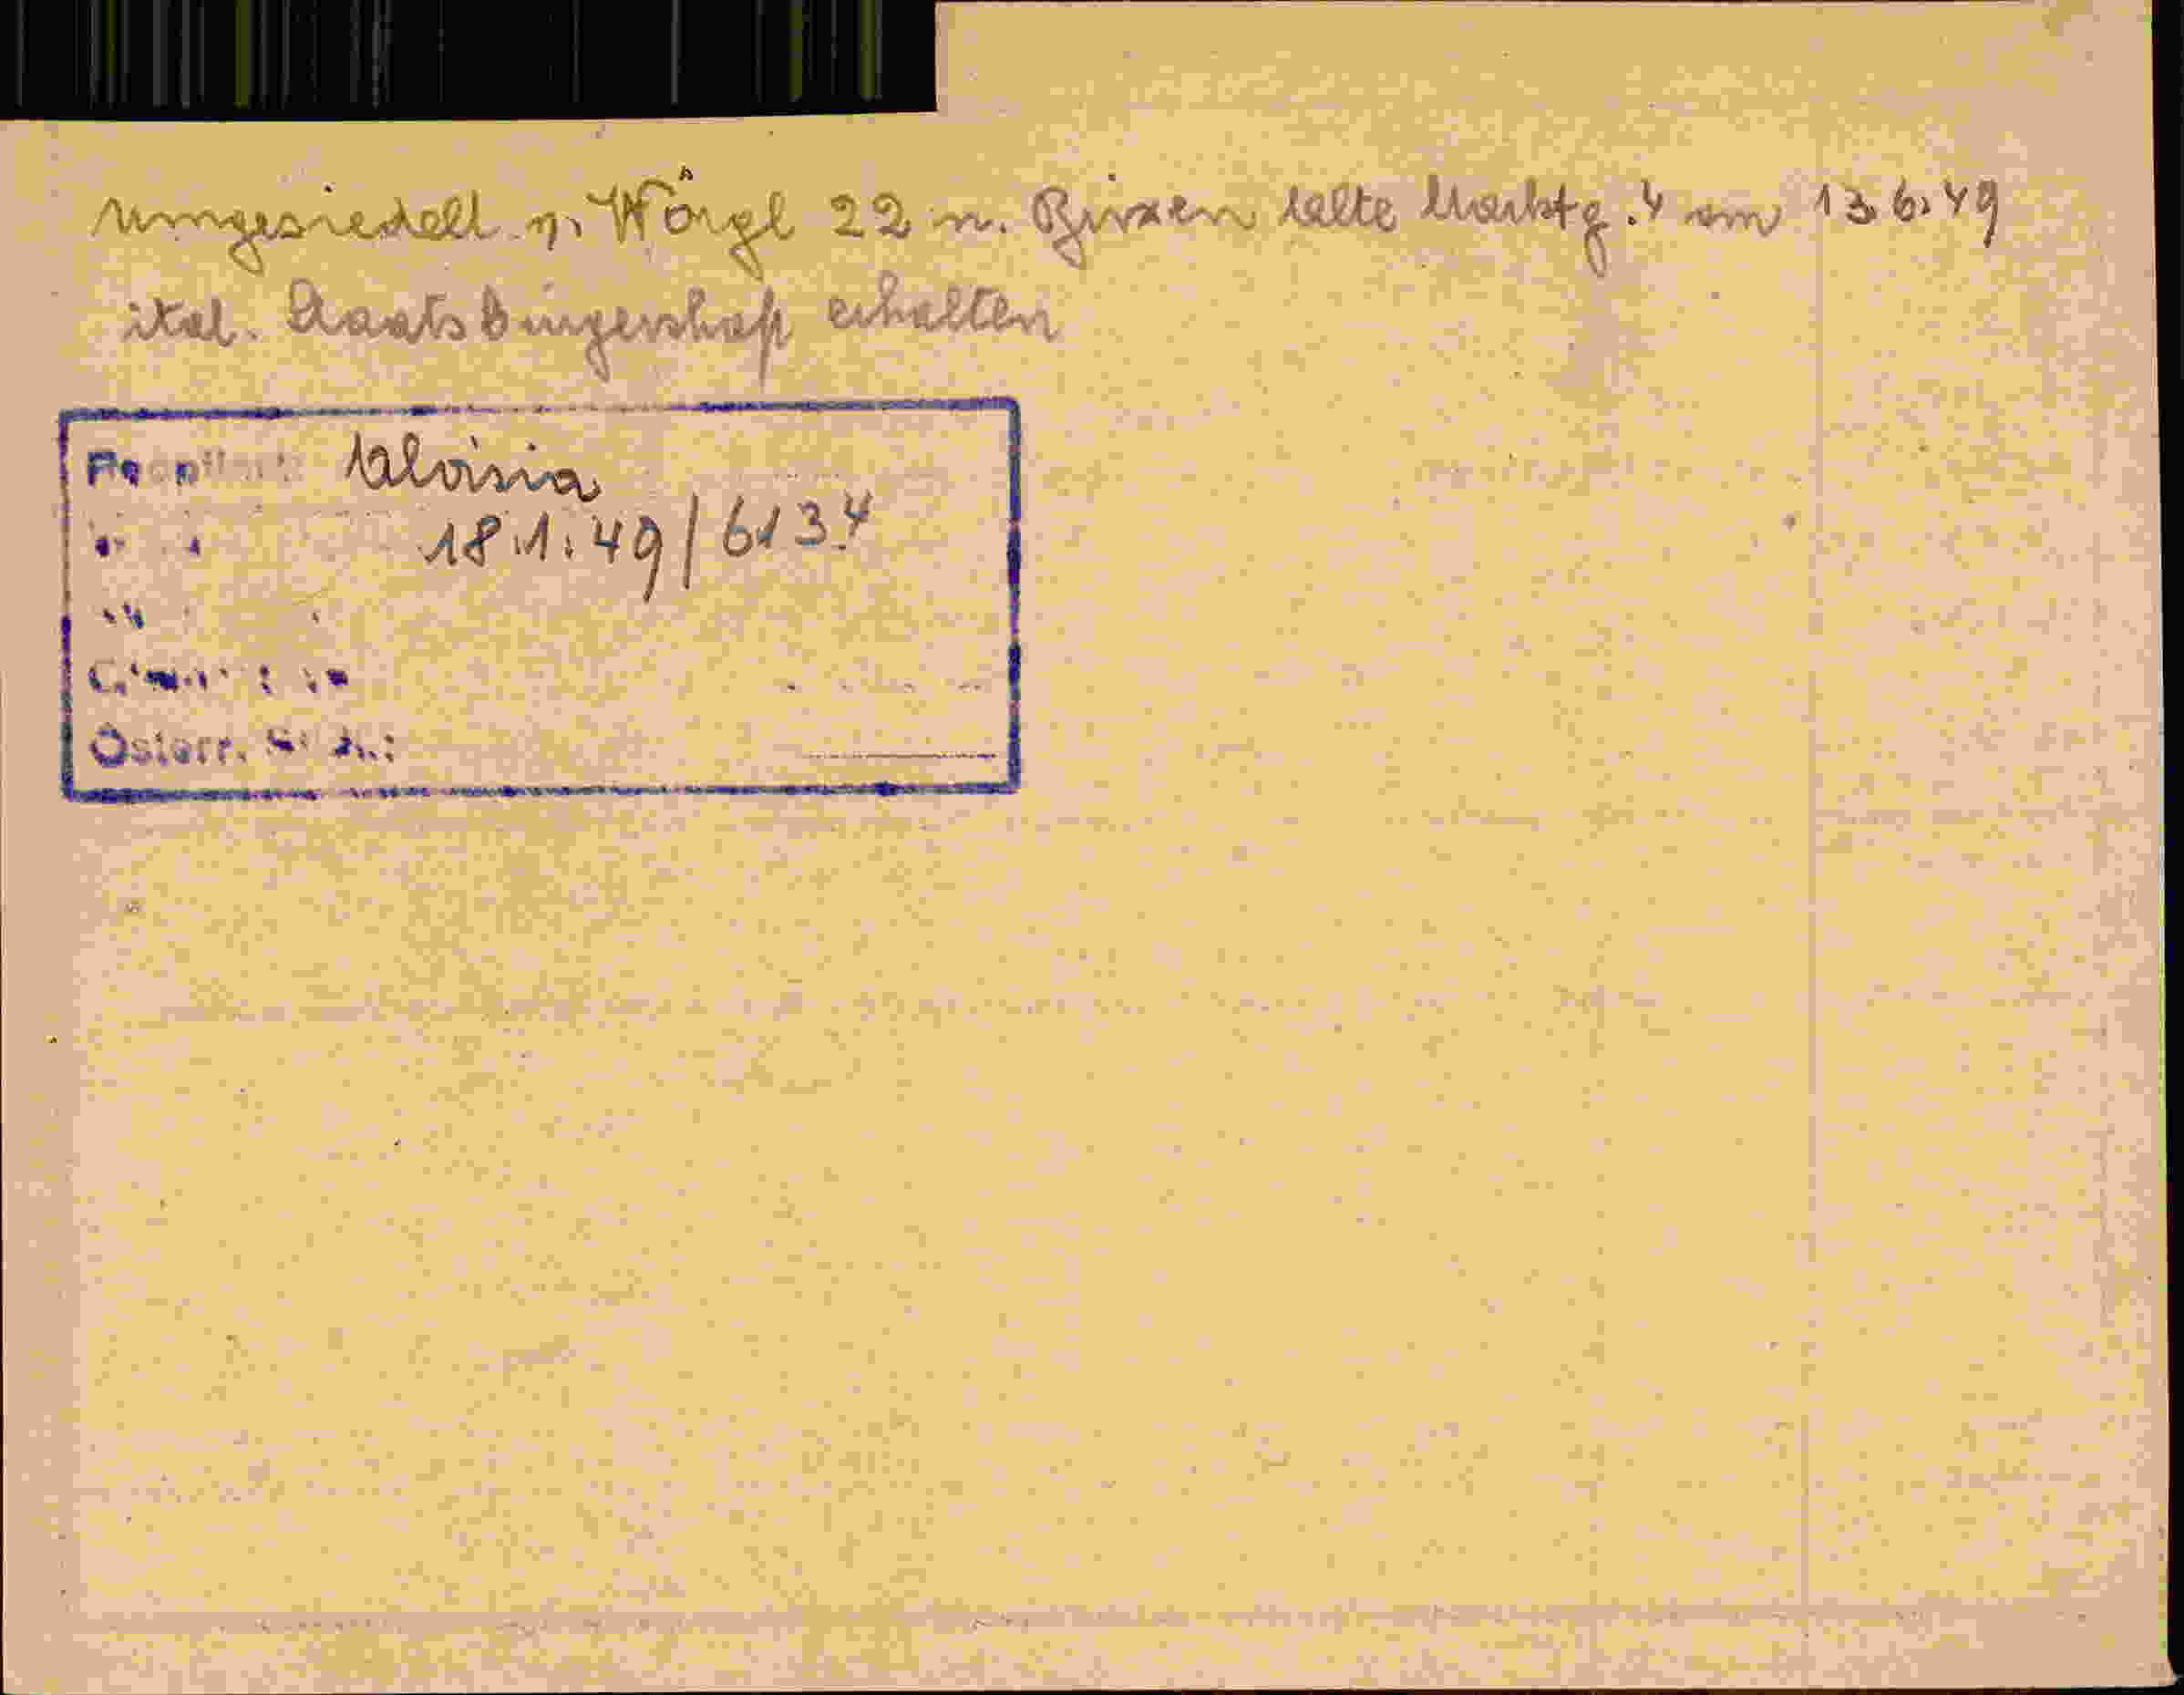 umgesiedelt n. Wörgl 22 n. Brixen alte Marktg. 4 am 13.6.49
ital. Staatsbürgerschaft erhalten
Aloisia
18.1.49/6134
Österr.